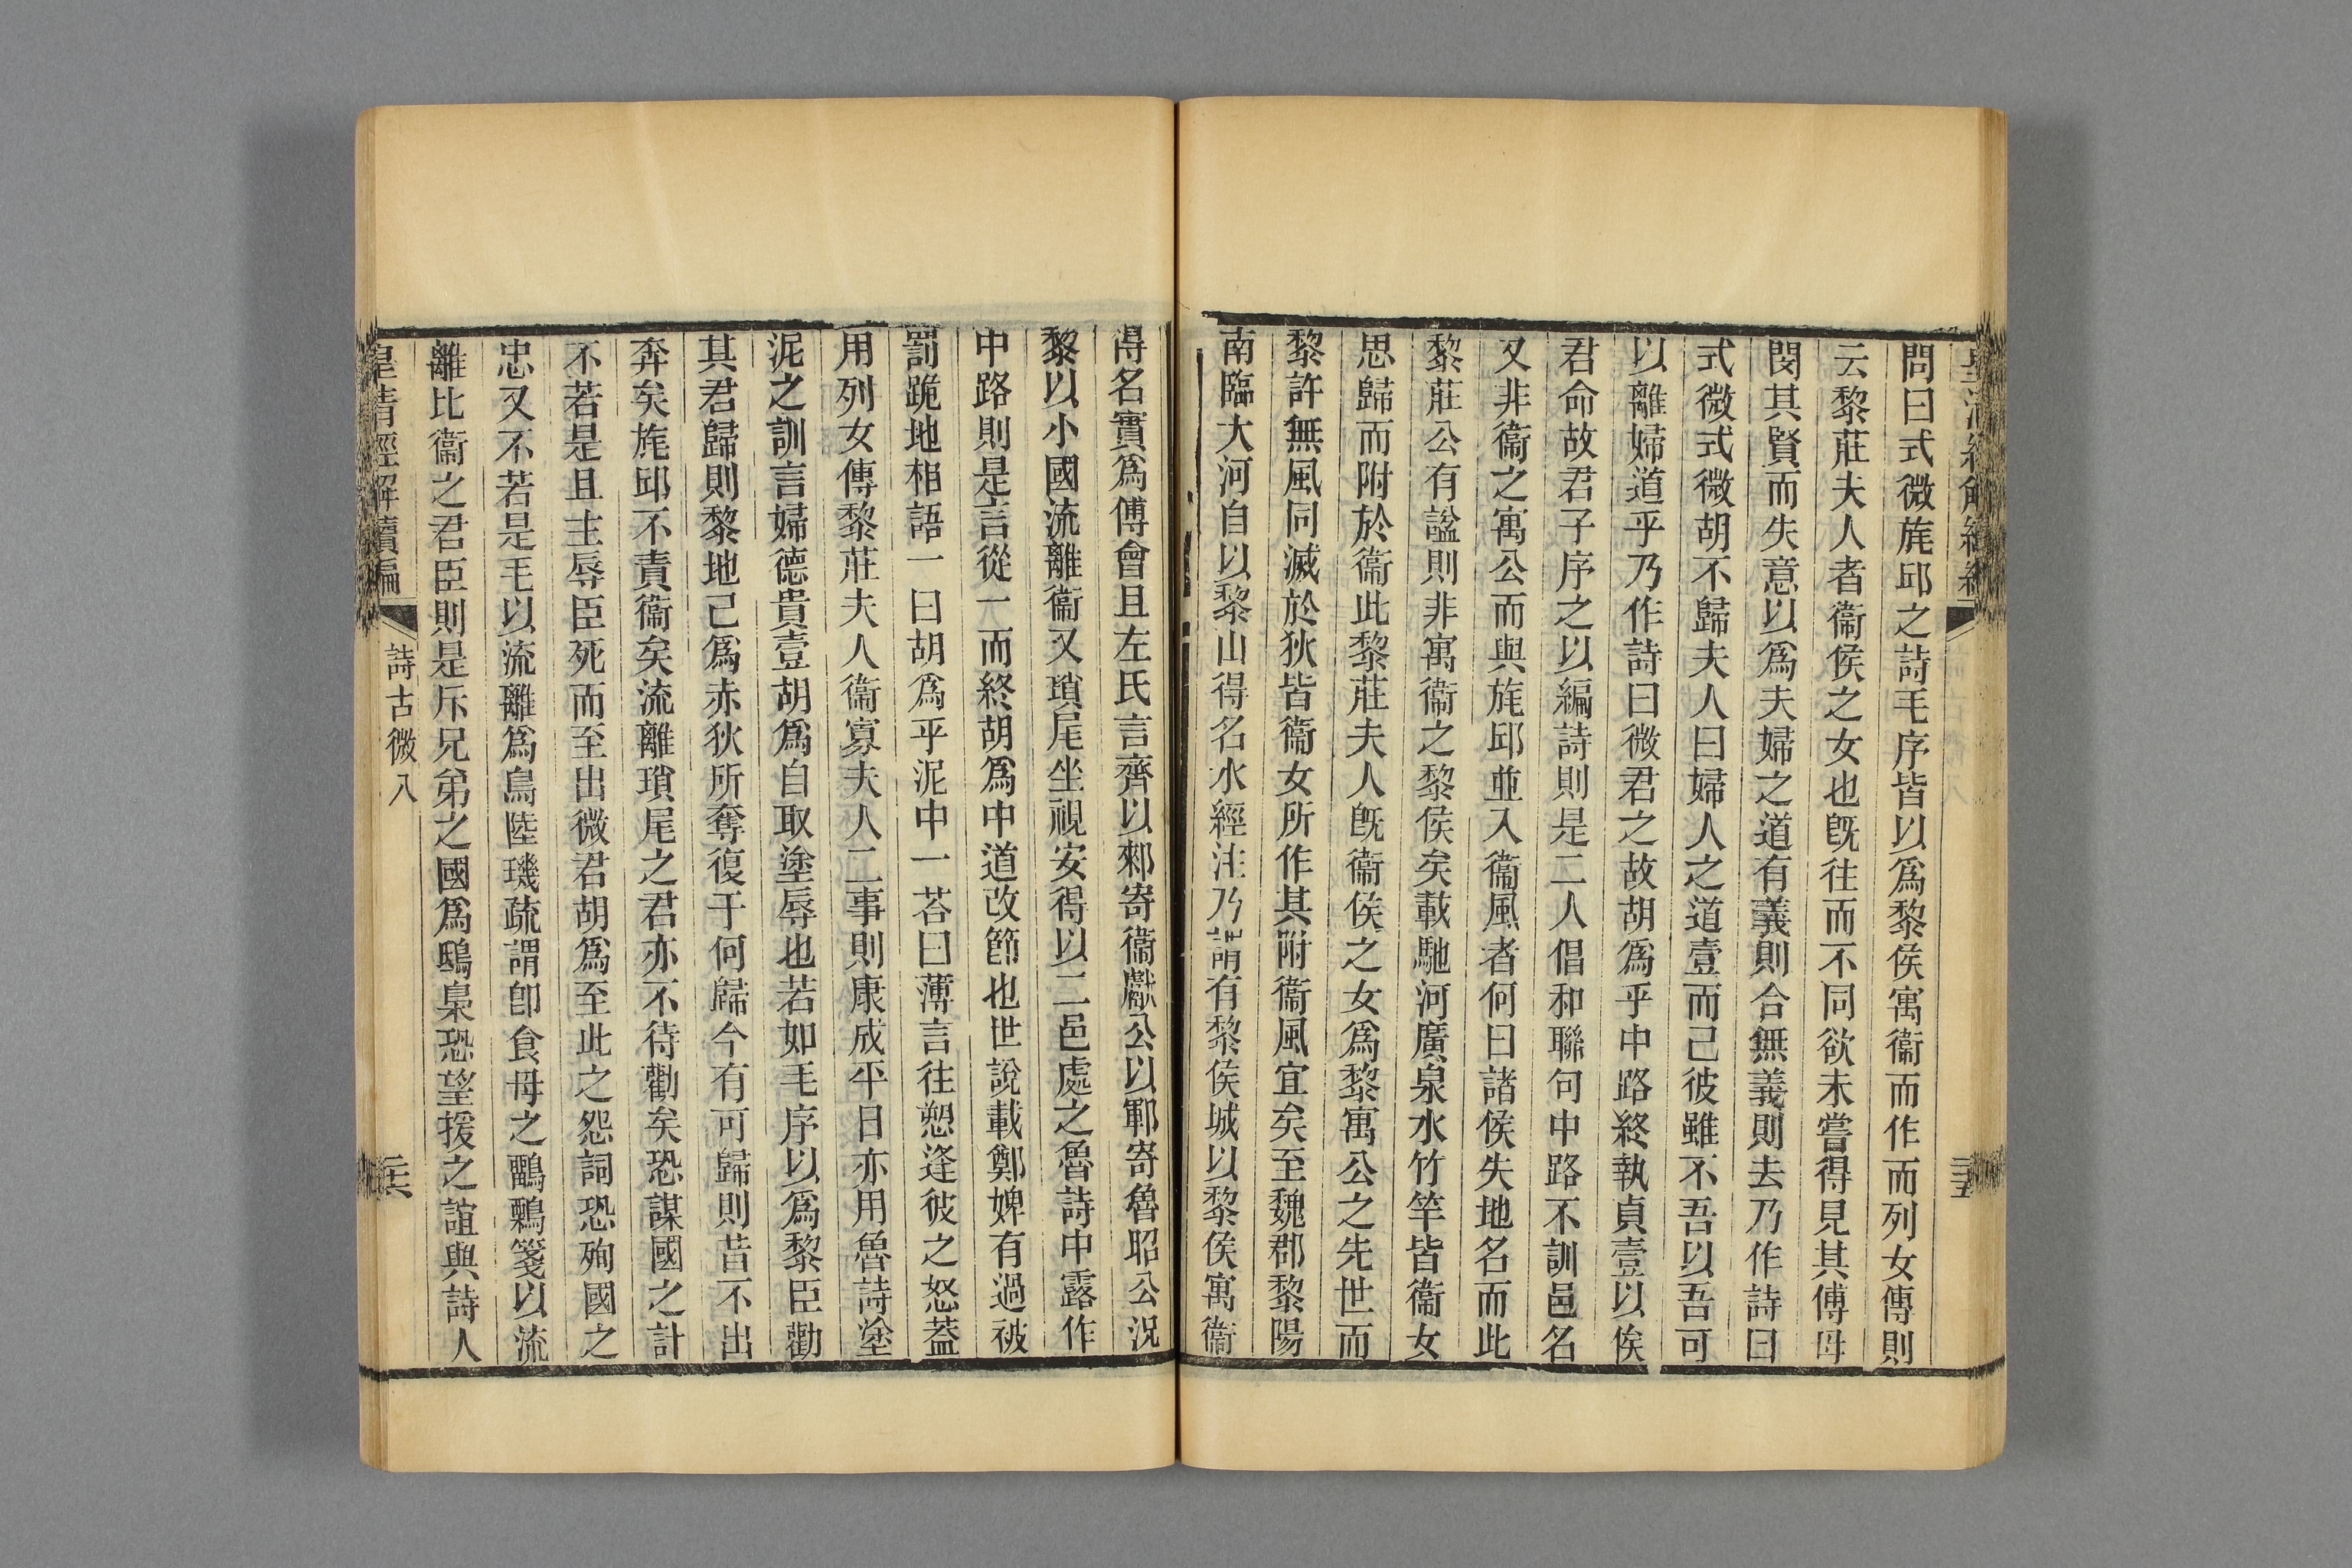 問曰式微旄邱之詩毛序皆以爲黎侯寓衞而作而列女傳則
云黎莊夫人者衞侯之女也旣往而不同欲未嘗得見其傅母
閔其賢而失意以爲夫婦之道有義則合無義則去乃作詩曰
式微式微胡不歸夫人曰婦人之道壹而已彼雖不吾以吾可
以離婦道乎乃作詩曰微君之故胡爲乎中路終執貞壹以俟
君命故君子序之以編詩則是二人倡和聯句中路不訓邑名
又非衞之寓公而與旄邱並入衞風者何曰諸侯失地名而此
黎莊公有諡則非寓衞之黎侯矣載馳河廣泉水竹竿皆衞女
思歸而附於衞此黎莊夫人旣衞侯之女爲黎寓公之先世而
黎許無風同滅於狄皆衞女所作其附衞風宜矣至魏郡黎陽
南臨大河自以黎山得名水經注乃謂有黎侯城以黎侯寓衞
得名實爲傅會且左氏言齊以郲寄衞獻公以鄆寄魯昭公況
黎以小國流離衞又瑣尾坐視安得以二邑處之魯詩中露作
中路則是言從一而終胡爲中道改節也世說載鄭婢有過被
罰跪地相語一曰胡爲乎泥中一荅曰薄言往愬逢彼之怒葢
用列女傳黎莊夫人衞寡夫人二事則康成平日亦用魯詩塗
泥之訓言婦德貴壹胡爲自取塗辱也若如毛序以爲黎臣勸
其君歸則黎地已爲赤狄所奪復于何歸今有可歸則昔不出
奔矣旄邱不責衞矣流離瑣尾之君亦不待勸矣恐謀國之計
不若是且主辱臣死而至出微君胡爲至此之怨詞恐殉國之
忠又不若是毛以流離爲鳥陸璣疏謂卽食母之鸝鷅箋以流
離比衞之君臣則是斥兄弟之國爲鴟梟恐望援之誼與詩人
皇淸經解續編
詩古微八
二六